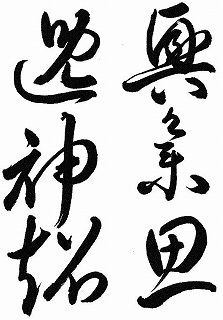 興集思
逸神超